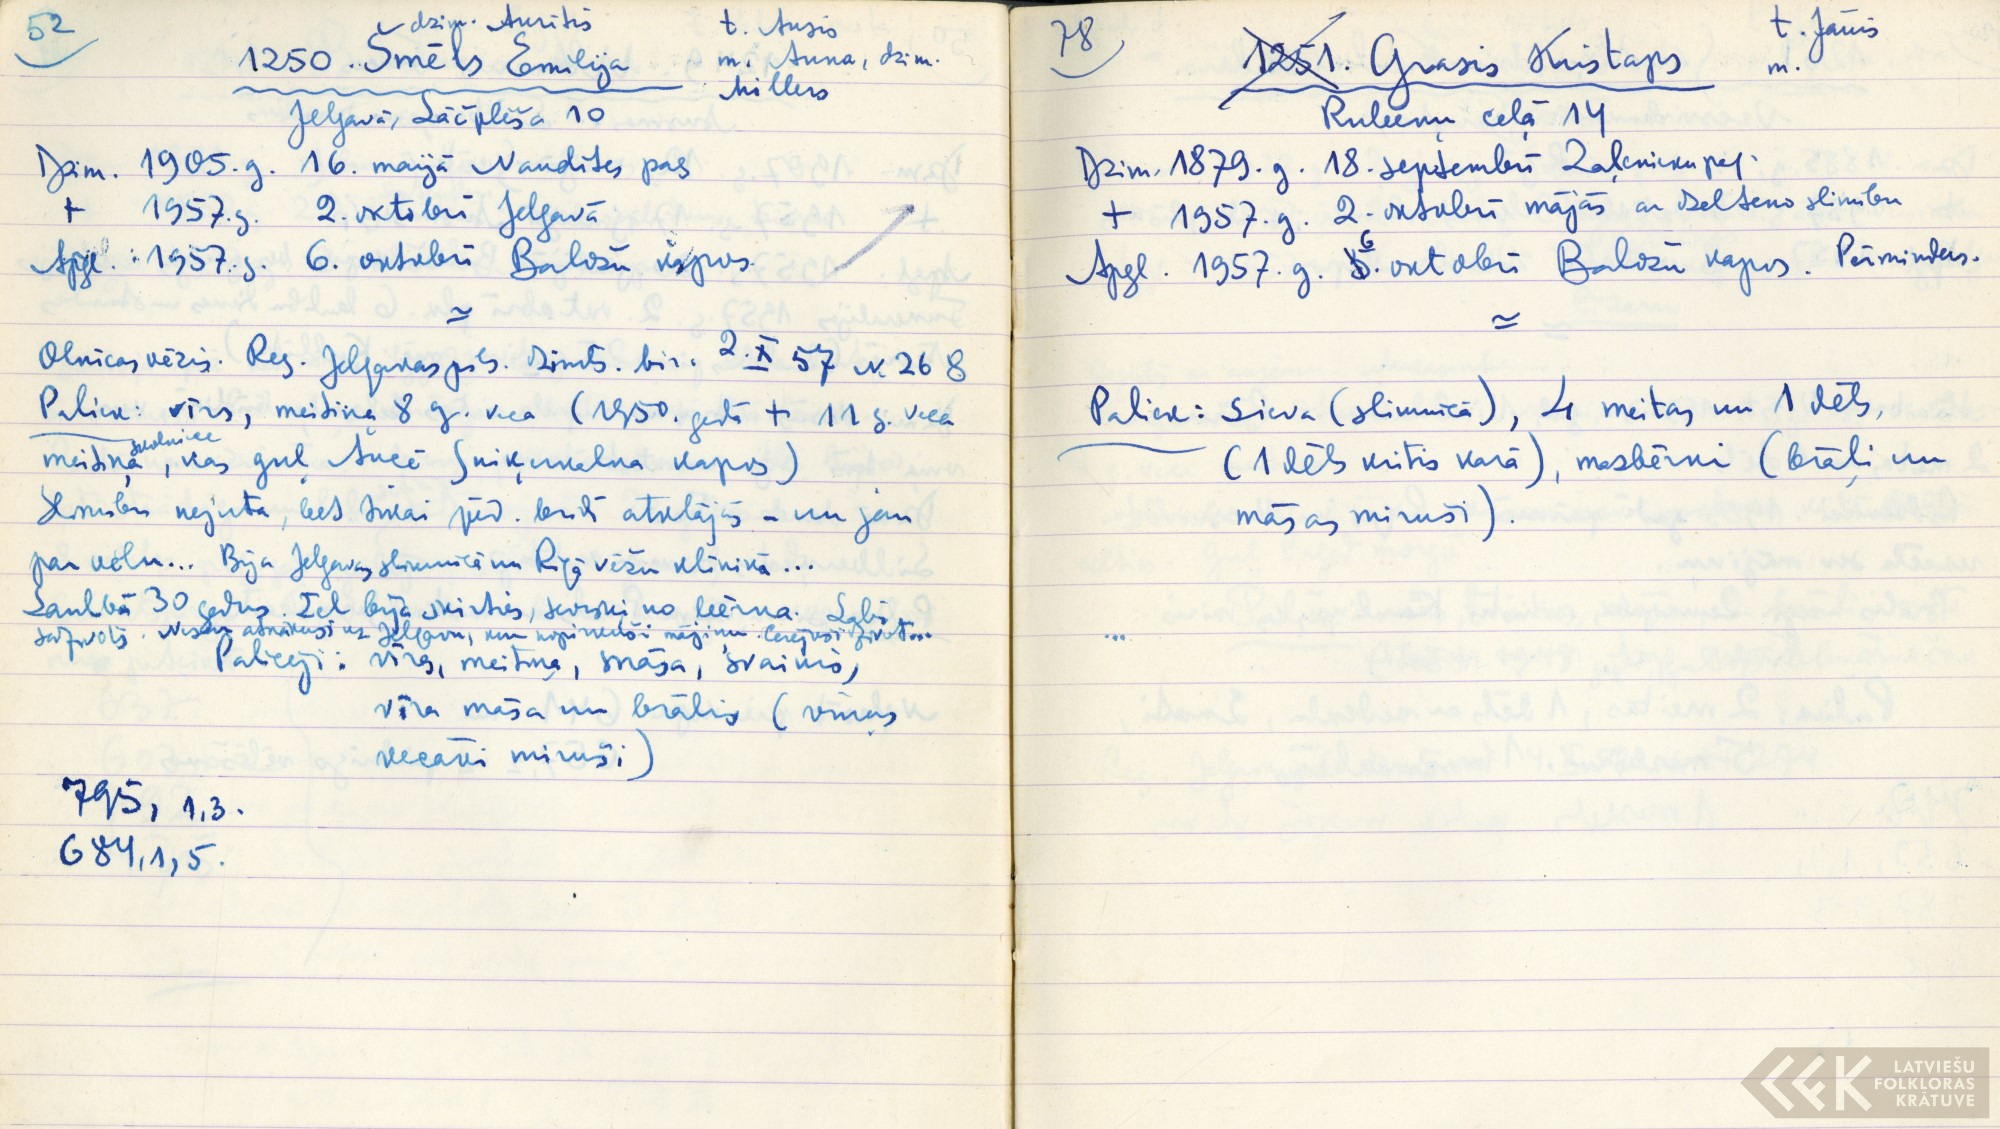 52
dzim. Auziņš
t. Ansis
1250. Šmēls Emilija
m. Anna, dzim.
Millers
Jelgavā, Lāčplēša 10
Dzim. 1905. g. 16. maijā Naudītes pag
+ 1957. g. 2. oktobrī Jelgavā
Apgl. : 1957. g. 6. oktobrī Baložu kapos.
≃
Olnīcas vēzis. Reg. Jelgavas pils. dzimts. bir. 2. X 57 N 268
Paliek: vīrs, meitiņa 8 g. veca (1950. gadā + 11 g. veca
skolniece
meitiņa, kas guļ Aucē kapos)
Slimību nejuta, bet tikai pēd. brīdī atklājās – un jau
par vēlu... Bija Jelgavas slimnīcā un Rīgā vēžu klīnikā...
Laulībā 30 gadus. bija šķirties, no bērna. Labi
sadzīvoja. uz Jelgavu, nopirkuši mājiņu. Cerējuši dzīvot...
Palicēji: vīrs, meitiņa, māsa, svainis,
vīra māsa un brālis (viņas
vecāki miruši)
795, 1,3.
684,1,5.
78
t. Jānis
1251. Grasis Kristaps
m.
Rubeņu ceļā 14
Dzim. 1879. g. 18. septembrī Zaļenieku pag.
+ 1957. g. 2. oktobrī mājās ar dzelteno slimību
6
Apgl. 1957. g. 5. oktobrī Baložu kapos. Pērminders.
≃
Paliek: sieva (slimnīcā), 4 meitas un 1 dēls,
(1 dēls kritis karā), mazbērni (brāļi un
māsas miruši).
...
LATVIEŠU
FOLKLORAS
KRĀTUVE